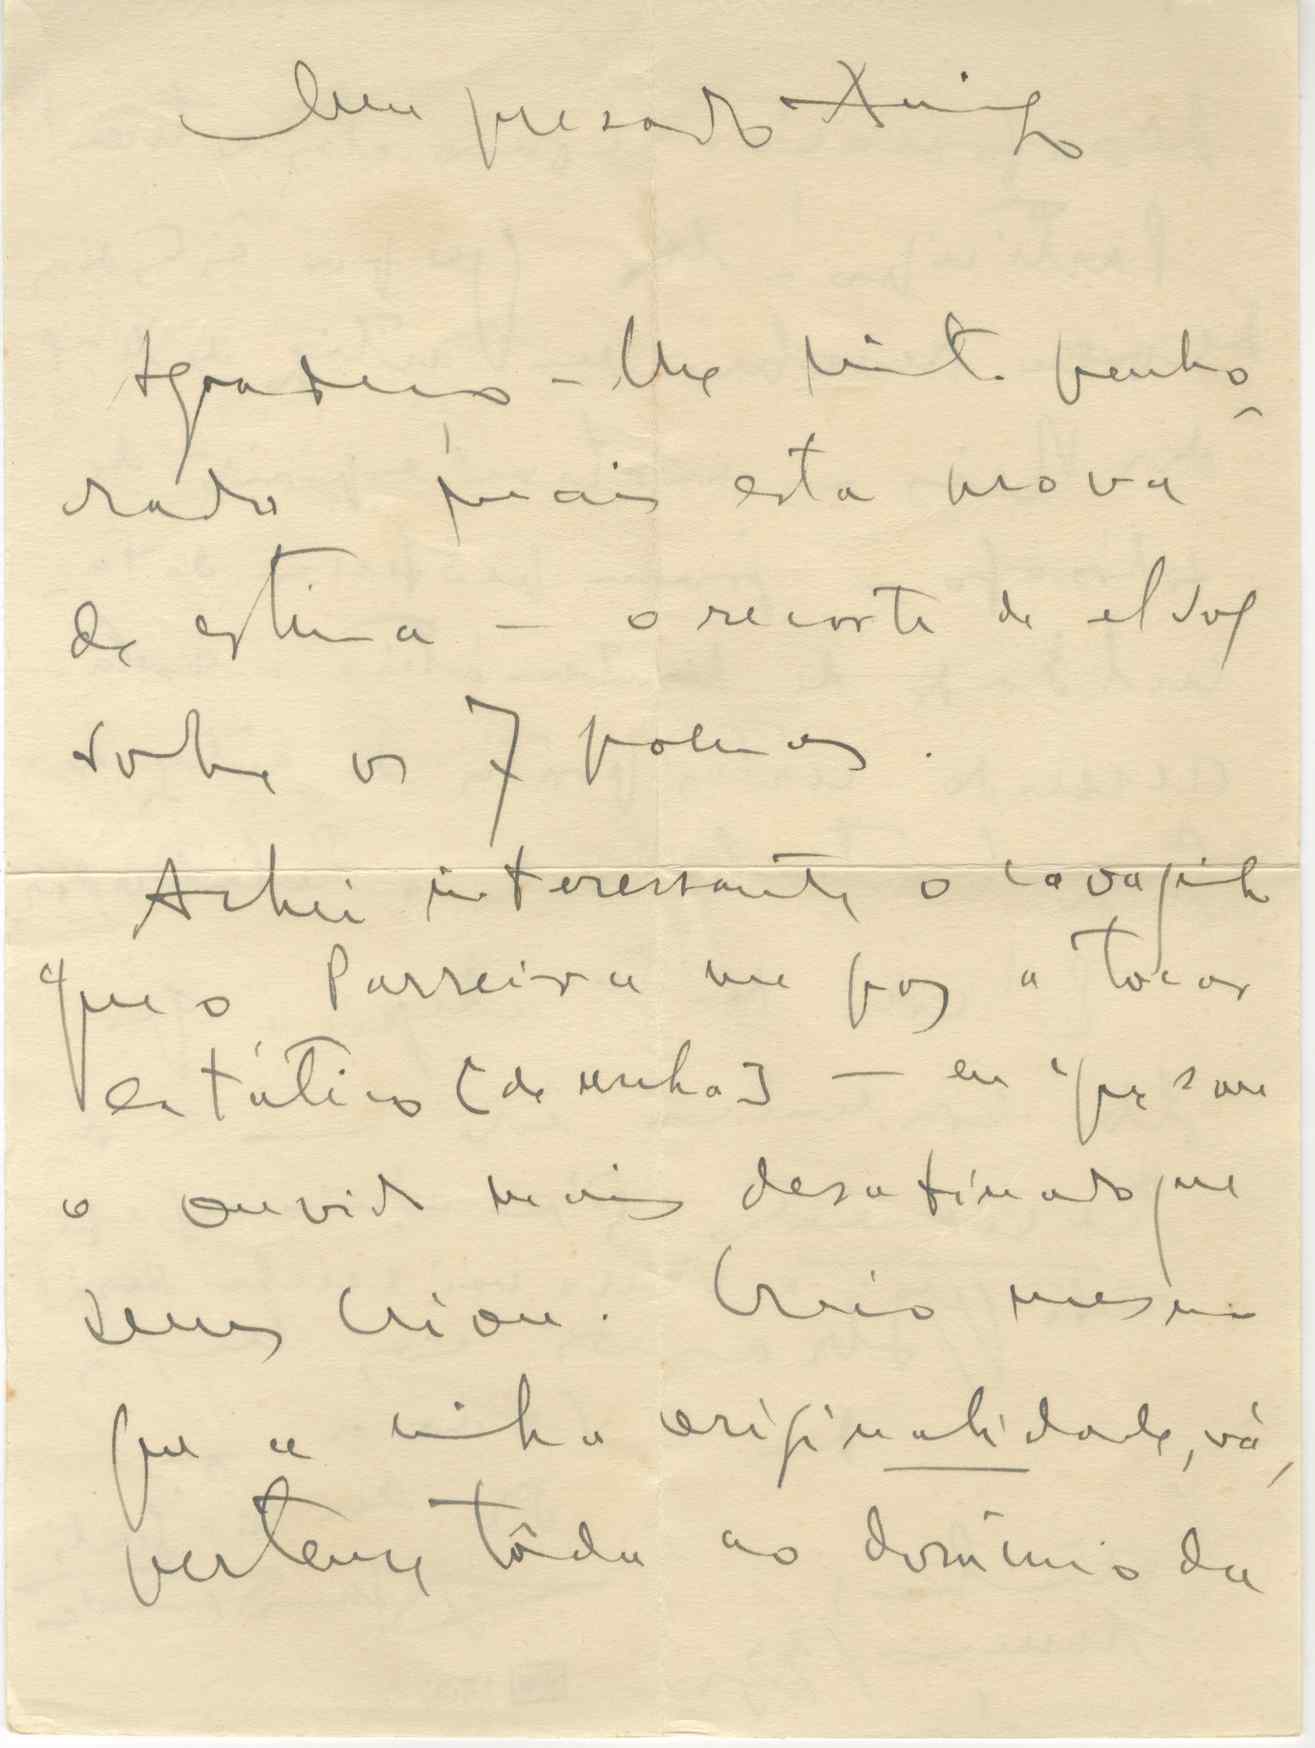 Meu presado Amigo
Agradeço-lhe muito penho-
rado mais esta prova
de estima – o recorte de el sol
sobre os 7 poemas.
Achei interessante o cavaquinho
que o Parreira me poz a tocar
estático [de unha] — eu que sou
o ouvido mais desafinado que
Deus criou. Creio mesmo
que a minha originalidade, vá,
pertence tôda ao domínio da